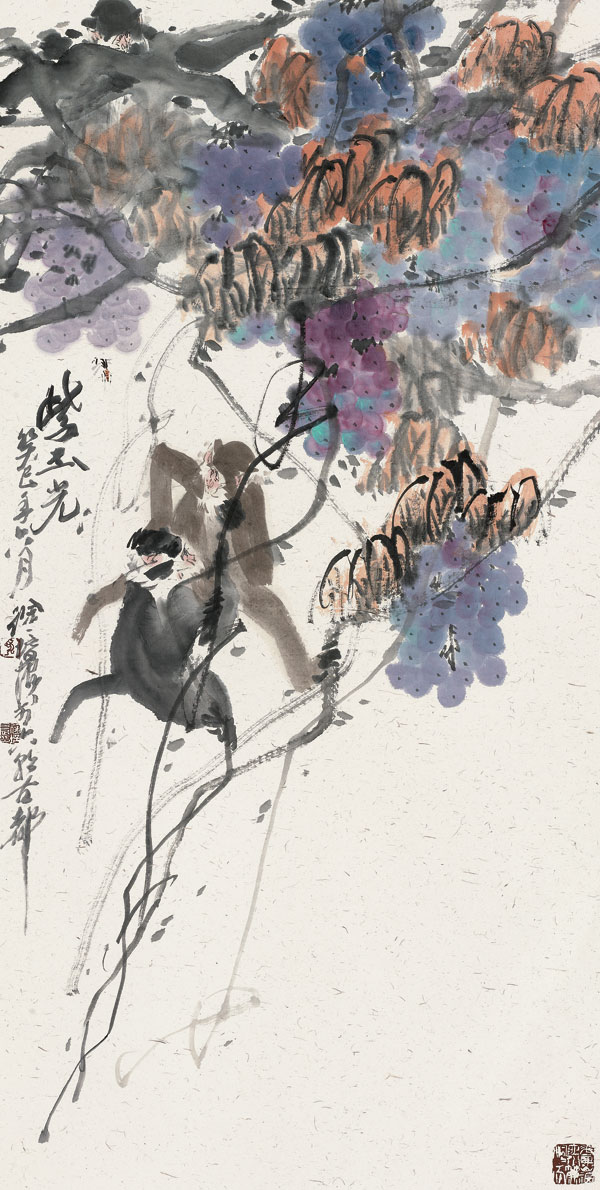 紫玉光
癸巳年六月徐培晨於六朝古都